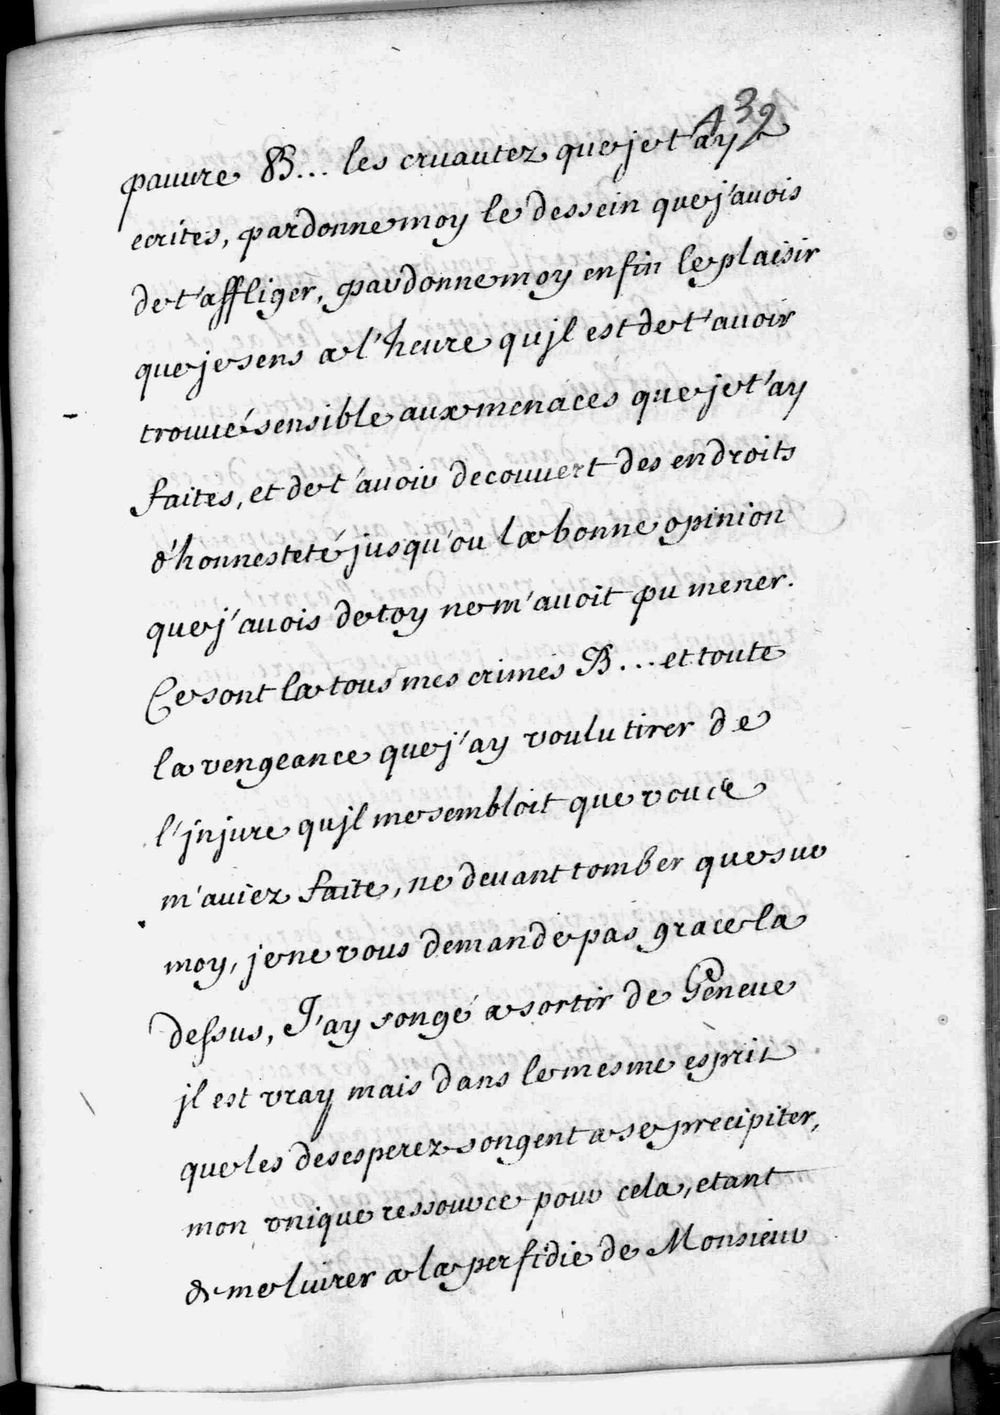 39
pauure B... les cruautez que je t'ay
ecrites, pardonne moy le dessein que j'auois
de t'affliger, pardonne moy enfin le plaisir
que je sens a l'heure qujl est de t'auoir
trouué sensible aux menaces que je t'ay
faites, et de t'auoir decouuert des endroits
d'honnesteté jusqu'ou la bonne opinion
que j'auois de toy ne m'auoit pu mener.
Ce sont la tous mes crimes B... et toute
la vengeance que j'ay voulu tirer de
l'jnjure qujl me sembloit que vous
m'auiez faite, ne deuant tomber que sur
moy, je ne vous demande pas grace la
dessus, J'ay songé a sortir de Geneue
jl est vray mais dans le mesme esprit
que les desesperez songent a se precipiter,
mon vnique ressource pour cela, etant
de me liurer a la perfidie de Monsieur